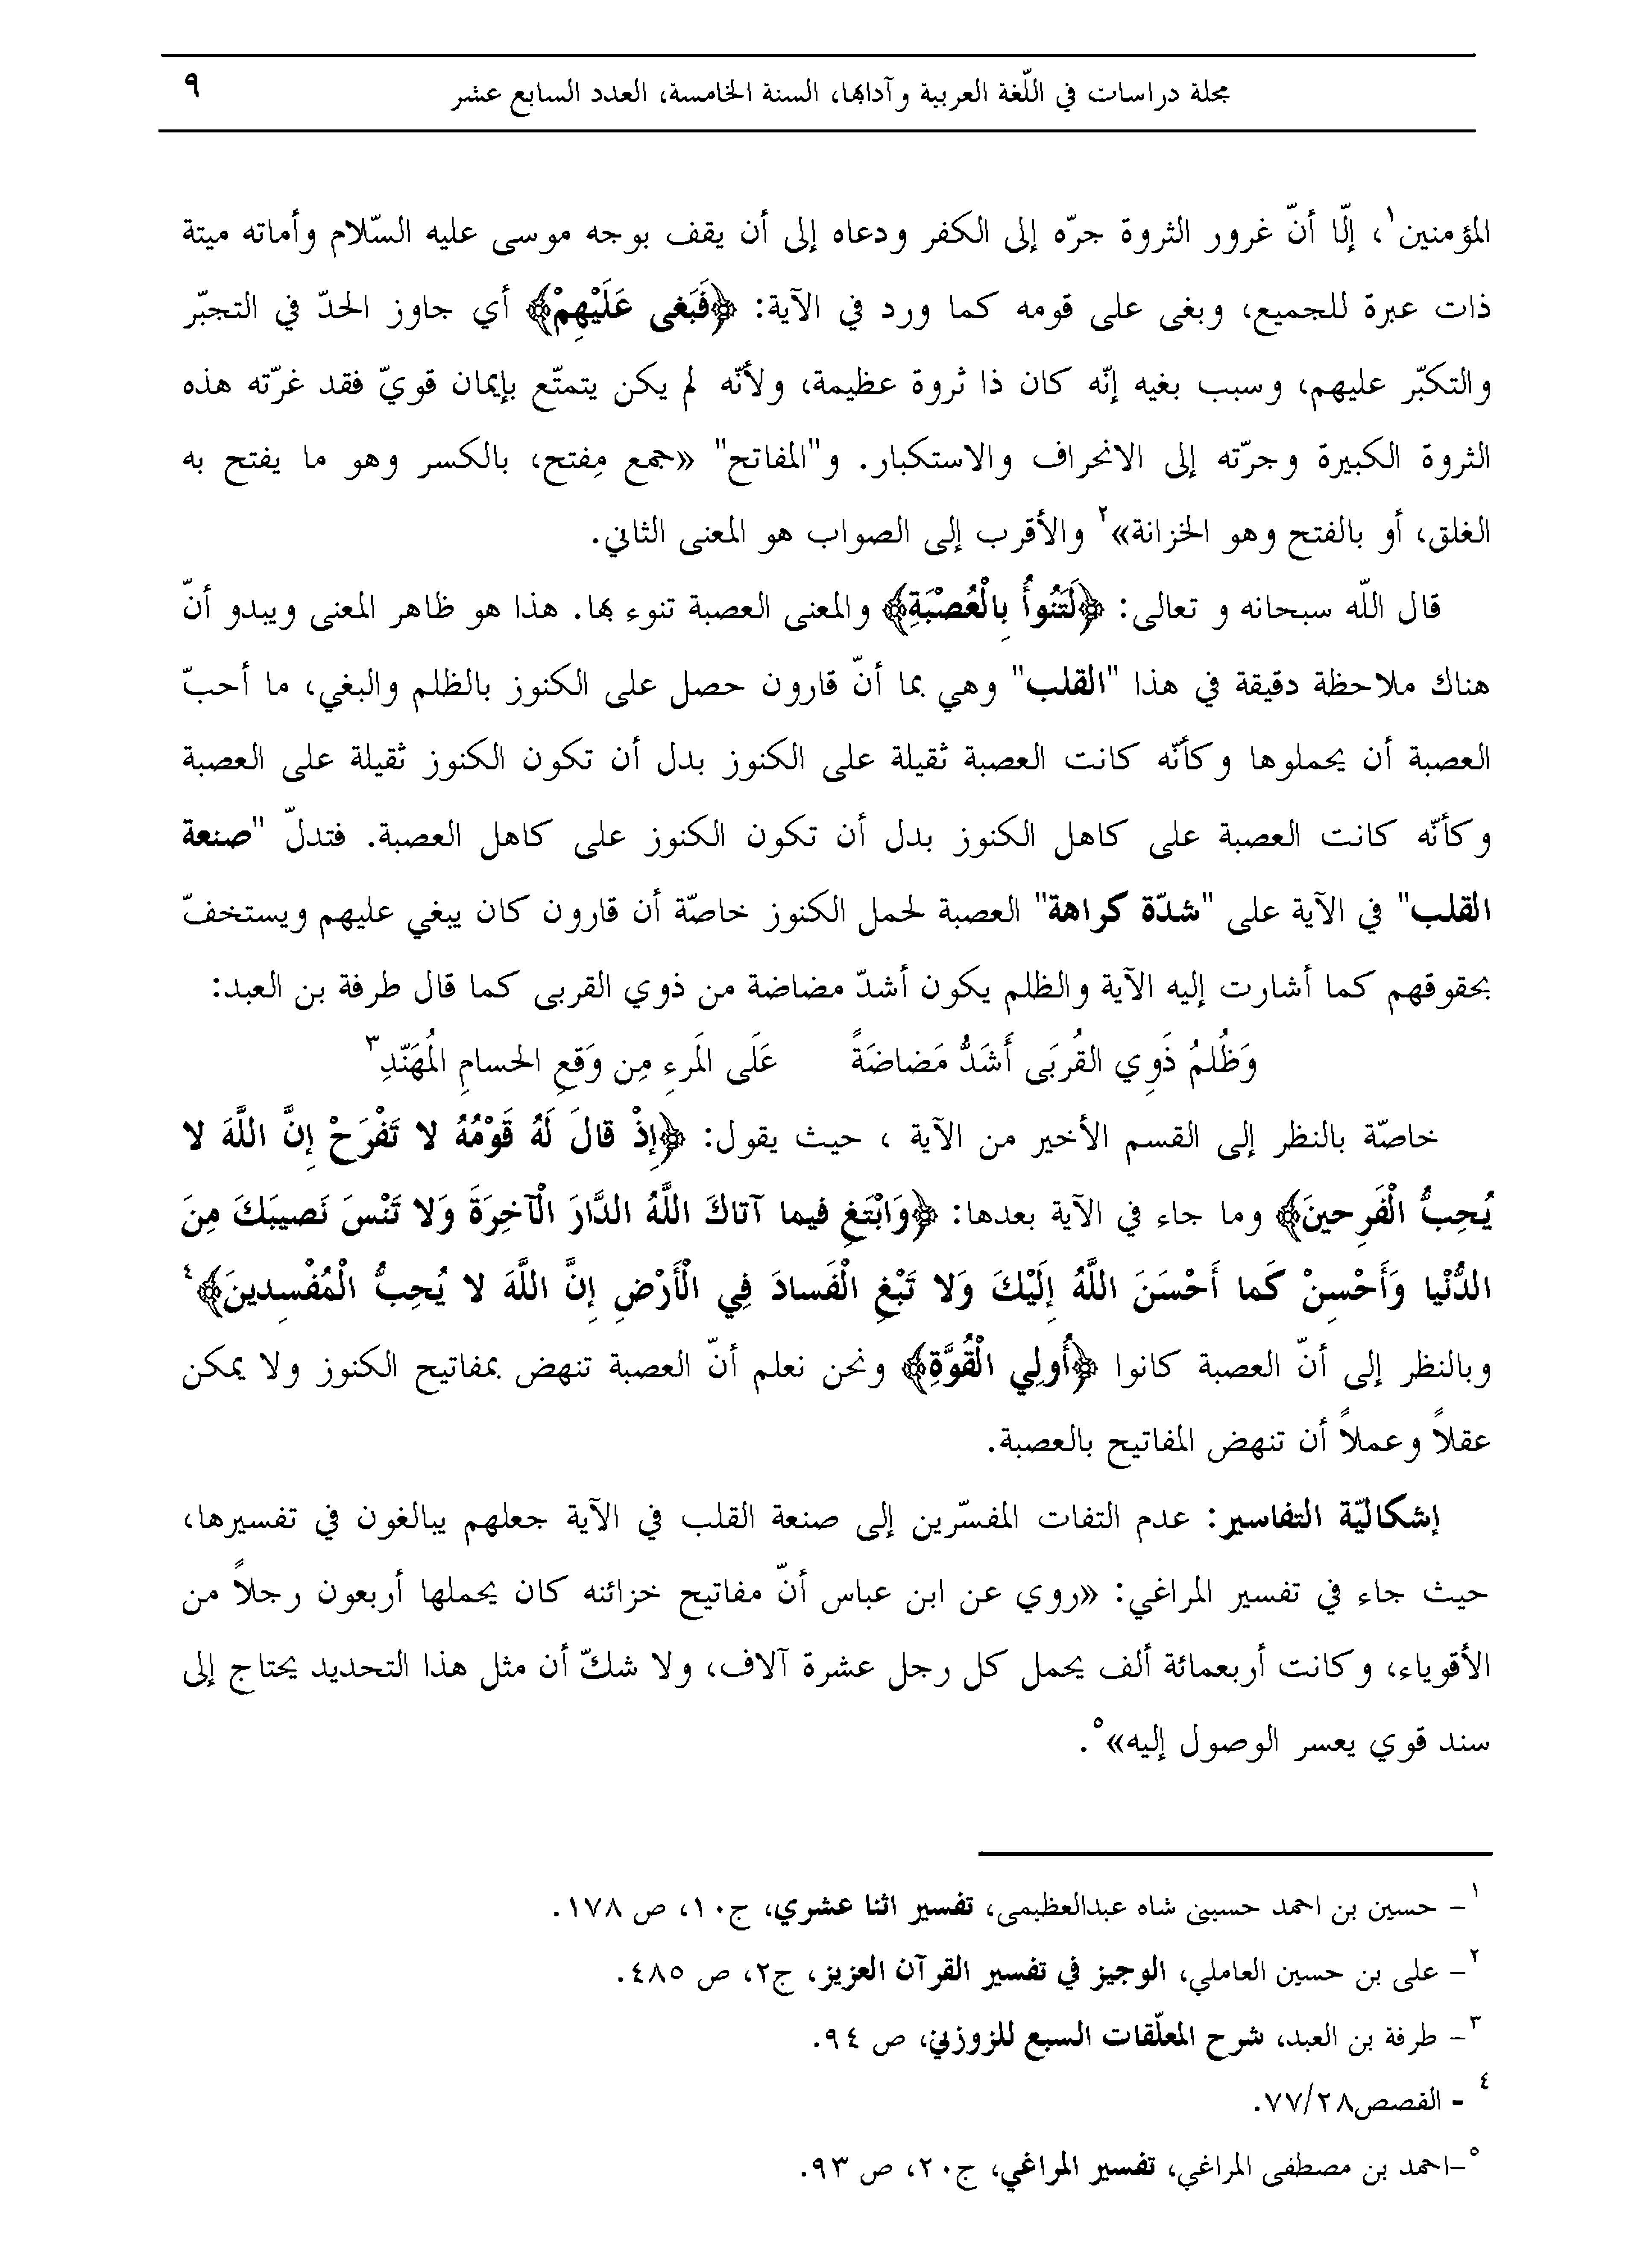 مجلة دراسات في اللّغة العربية وآدابها، السنة الخامسة، العدد السابع عشر ٩
المؤمنين١، إلّا أنّ غرور الثروة جرّه إلى الكفر ودعاه إلى أن يقف بوجه موسى عليه السّلام وأماته ميتة
ذات عبرة للجميع، وبغى على قومه كما ورد في الآية: ﴿فَبَغى عَلَيْهِمْ﴾ أي جاوز الحدّ في التجبّر
والتكبّر عليهم، وسبب بغيه إنّه كان ذا ثروة عظيمة، ولأنّه لم يكن يتمتّع بإيمان قويّ فقد غرّته هذه
الثروة الكبيرة وجرّته إلى الانحراف والاستكبار. و"المفاتح" «جمع مِفتح، بالكسر وهو ما يفتح به
الغلق، أو بالفتح وهو الخزانة»٢ والأقرب إلى الصواب هو المعنى الثاني.
قال اللّه سبحانه و تعالى: ﴿لَتَنُوأُ بِالْعُصْبَةِ﴾ والمعنى العصبة تنوء بها. هذا هو ظاهر المعنى ويبدو أنّ
هناك ملاحظة دقيقة في هذا "القلب" وهي بما أنّ قارون حصل على الكنوز بالظلم والبغي، ما أحبّ
العصبة أن يحملوها وكأنّه كانت العصبة ثقيلة على الكنوز بدل أن تكون الكنوز ثقيلة على العصبة
وكأنّه كانت العصبة على كاهل الكنوز بدل أن تكون الكنوز على كاهل العصبة. فتدلّ "صنعة
القلب" في الآية على "شدّة كراهة" العصبة لحمل الكنوز خاصّة أن قارون كان يبغي عليهم ويستخفّ
بحقوقهم كما أشارت إليه الآية والظلم يكون أشدّ مضاضة من ذوي القربى كما قال طرفة بن العبد:
وَظُلمُ ذَوِي القُربَى أَشَدُّ مَضاضَةً عَلَى المَرءِ مِن وَقعِ الحسامِ المُهَنّدِ٣
خاصّة بالنظر إلى القسم الأخير من الآية ، حيث يقول: ﴿إِذْ قالَ لَهُ قَوْمُهُ لا تَفْرَحْ إِنَّ اللَّهَ لا
يُحِبُّ الْفَرِحينَ﴾ وما جاء في الآية بعدها: ﴿وَابْتَغِ فيما آتاكَ اللَّهُ الدَّارَ الْآخِرَةَ وَلا تَنْسَ نَصيبَكَ مِنَ
الدُّنْيا وَأَحْسِنْ كَما أَحْسَنَ اللَّهُ إِلَيْكَ وَلا تَبْغِ الْفَسادَ فِي الْأَرْضِ إِنَّ اللَّهَ لا يُحِبُّ الْمُفْسِدينَ﴾٤
وبالنظر إلى أنّ العصبة كانوا ﴿أُولِي الْقُوَّةِ﴾ ونحن نعلم أنّ العصبة تنهض بمفاتيح الكنوز ولا يمكن
عقلاً وعملاً أن تنهض المفاتيح بالعصبة.
إشكاليّة التفاسير: عدم التفات المفسّرين إلى صنعة القلب في الآية جعلهم يبالغون في تفسيرها،
حيث جاء في تفسير المراغي: «روي عن ابن عباس أنّ مفاتيح خزائنه كان يحملها أربعون رجلاً من
الأقوياء، وكانت أربعمائة ألف يحمل كل رجل عشرة آلاف، ولا شكّ أن مثل هذا التحديد يحتاج إلى
سند قوي يعسر الوصول إليه»٥.
١- حسين بن احمد حسينى شاه عبدالعظيمى، تفسير اثنا عشري، ج١٠، ص ١٧٨.
٢- على بن حسين العاملي، الوجيز في تفسير القرآن العزيز، ج٢، ص ٤٨٥.
٣- طرفة بن العبد، شرح المعلّقات السبع للزوزني، ص ٩٤.
٤ - القصص٧٧/٢٨.
٥-احمد بن مصطفى المراغي، تفسير المراغي، ج٢٠، ص ٩٣.